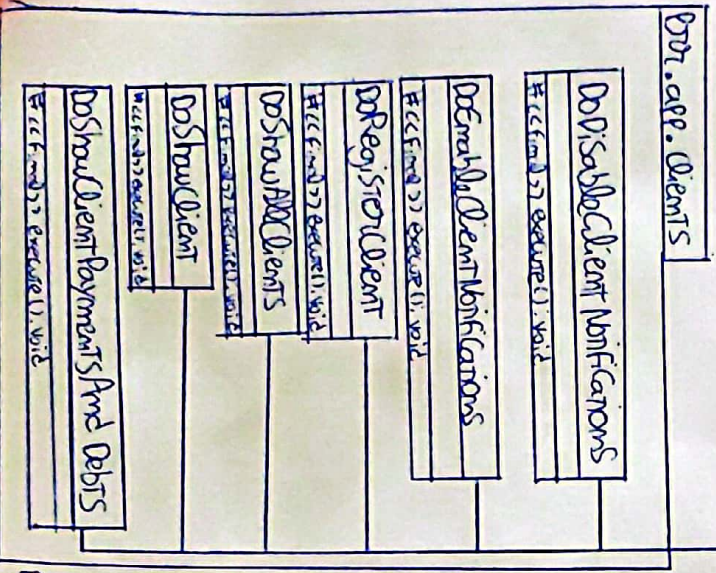 prr.app.clients
DoDisableClientNotifications
#<<final>> execute(): void
DoEnableClientNotifications
#<<final>> execute(): void
DoRegisterClient
#<<final>> execute(): void
DoShowAllClients
#<<final>> execute(): void
DoShowClient
#<<final>> execute(): void
DoShowClientPaymentsAnd Debts
#<<final>> execute(): void